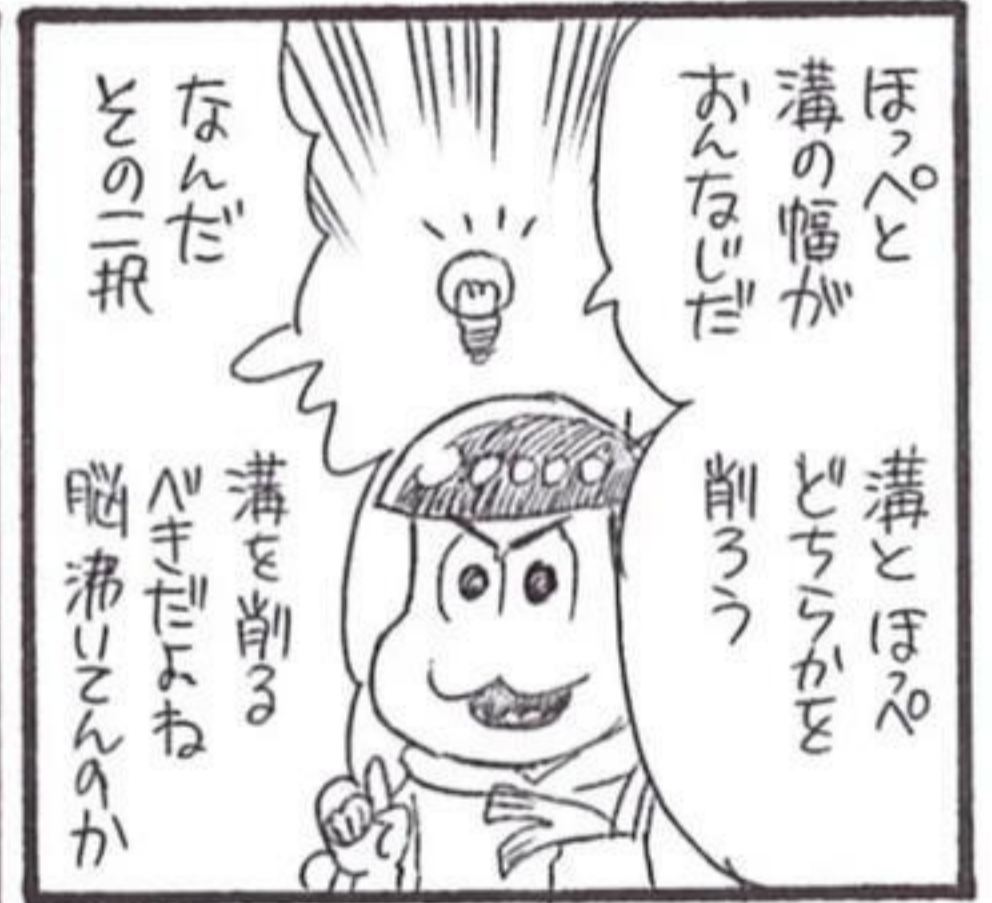 ほっぺと
溝の幅が
おんなじだ
溝とほっぺ
どちらかを
削ろう
なんだ
その二択
溝を削る
べきだよね
脳沸いてんのか